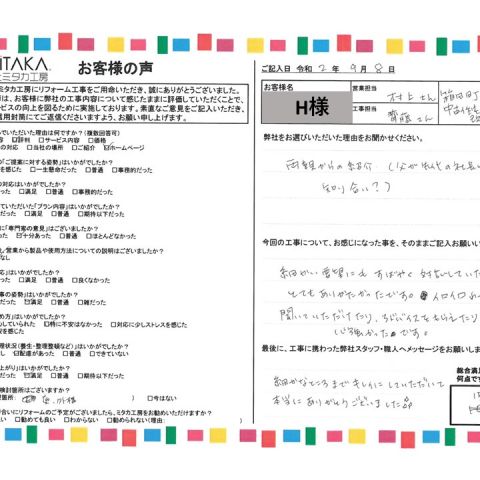 MiTAKA
ミタカ工房
お客様の声
ミタカ工房にリフォーム工事をご用命いただき、誠にありがとうございました。
は、お客様に弊社の工事内容について感じたままに評価していただくことで、
サービスの向上を図るために実施しております。素直なご意見をご記入いただき、
返信用封筒にてご返信くださいますよう、お願い申し上げます。
んでいただいた理由は何ですか?(複数回答可)
評判 □サービス内容 □価格
の対応 □当社の場所 □ご紹介 ホームページ
が「ご提案に対する姿勢」はいかがでしたか?
を感じた □一生懸命だった □普通 □事務的だった
の対応はいかがでしたか?
った □満足 □普通 □事務的だった
ていただいた「プラン内容」はいかがでしたか?
った 満足 □普通 □期待以下だった
に「専門家の意見」はございましたか?
った □十分あった □普通 □ほとんどなかった
、営業から製品や使用方法についての説明はございましたか?
なし
応」はいかがでしたか?
った □満足 □普通 □良くなかった
事の姿勢」はいかがでしたか?
った 満足 □普通 □雑だった
め方」はいかがでしたか?
っしていられた □特に不安はなかった □対応に少しストレスを感じた
を感じた
理状況(養生・整理整頓など)はいかがでしたか?
し 配慮があった □普通 □できていない
足」はいかがでしたか?
った 満足 □普通 □期待以下だった
検討箇所はございますか?
箇所: 外構 ) □今はない
合いにリフォームのご予定がございましたら、ミタカ工房をお勧めいただけますか?
い □勧めても良い □わからない □勧められない(理由: )
ご記入日 令和 2 年 9 月 8 日
お客様名
H様
営業担当
村上さん
工事担当
齊藤さん
弊社をお選びいただいた理由をお聞かせください。
両親からの紹介 (父が先代の社長
知り合い?)
今回の工事について、お感じになった事を、そのままご記入お願い
細かい要望にもすばやく対応していた
とてもありがたかったです。イロイロ
聞いていただけたり、アドバイスをもらえたり
心強かったです。
最後に、工事に携わった弊社スタッフ・職人へメッセージをお願いしま
細かなところまでキレイにしていただいて
本当にありがとうございました
総合満足
何点です